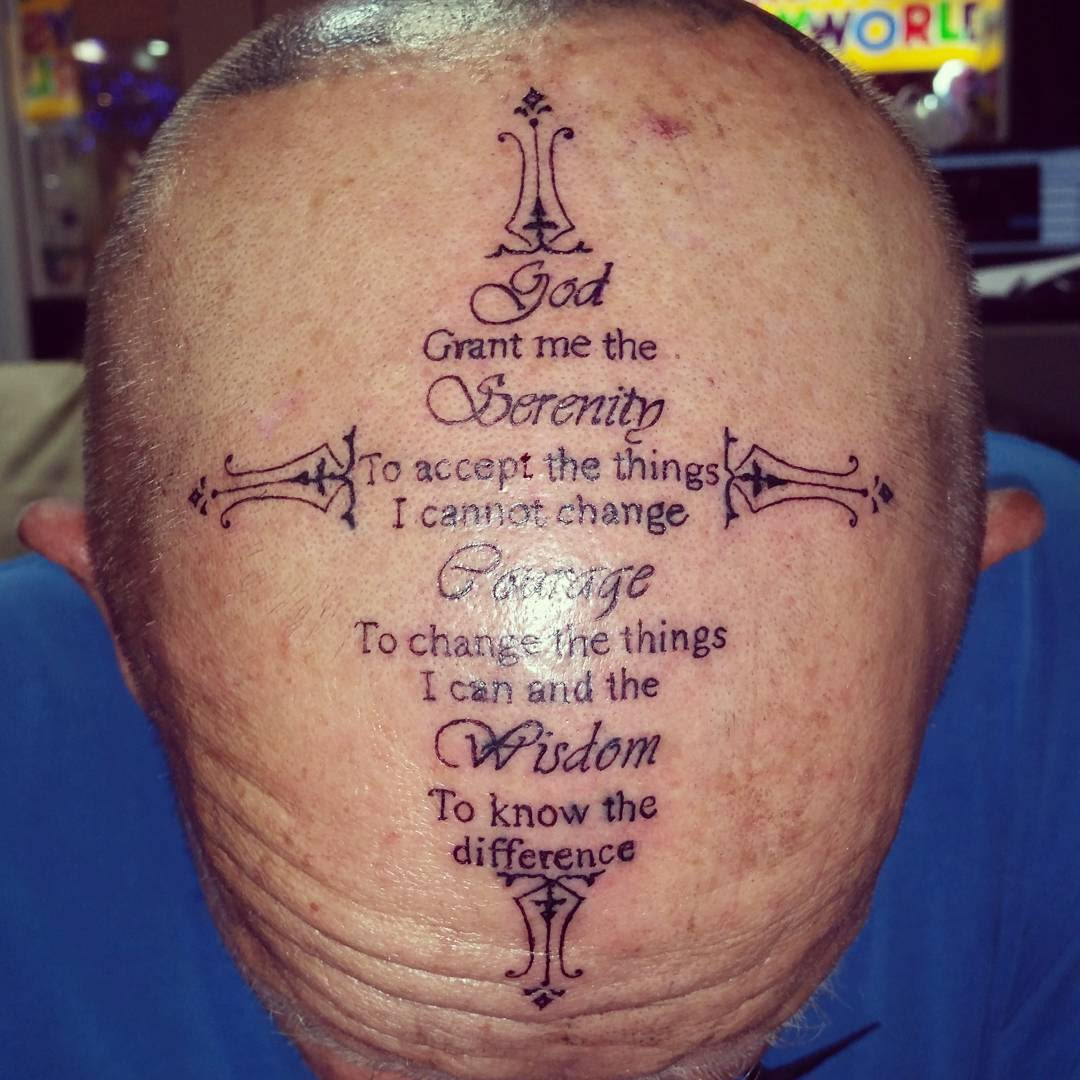 WORLD
God
Grant me the
Serenity
To accept the things
I cannot change
Courage
To change the things
I can and the
Wisdom
To know the
difference